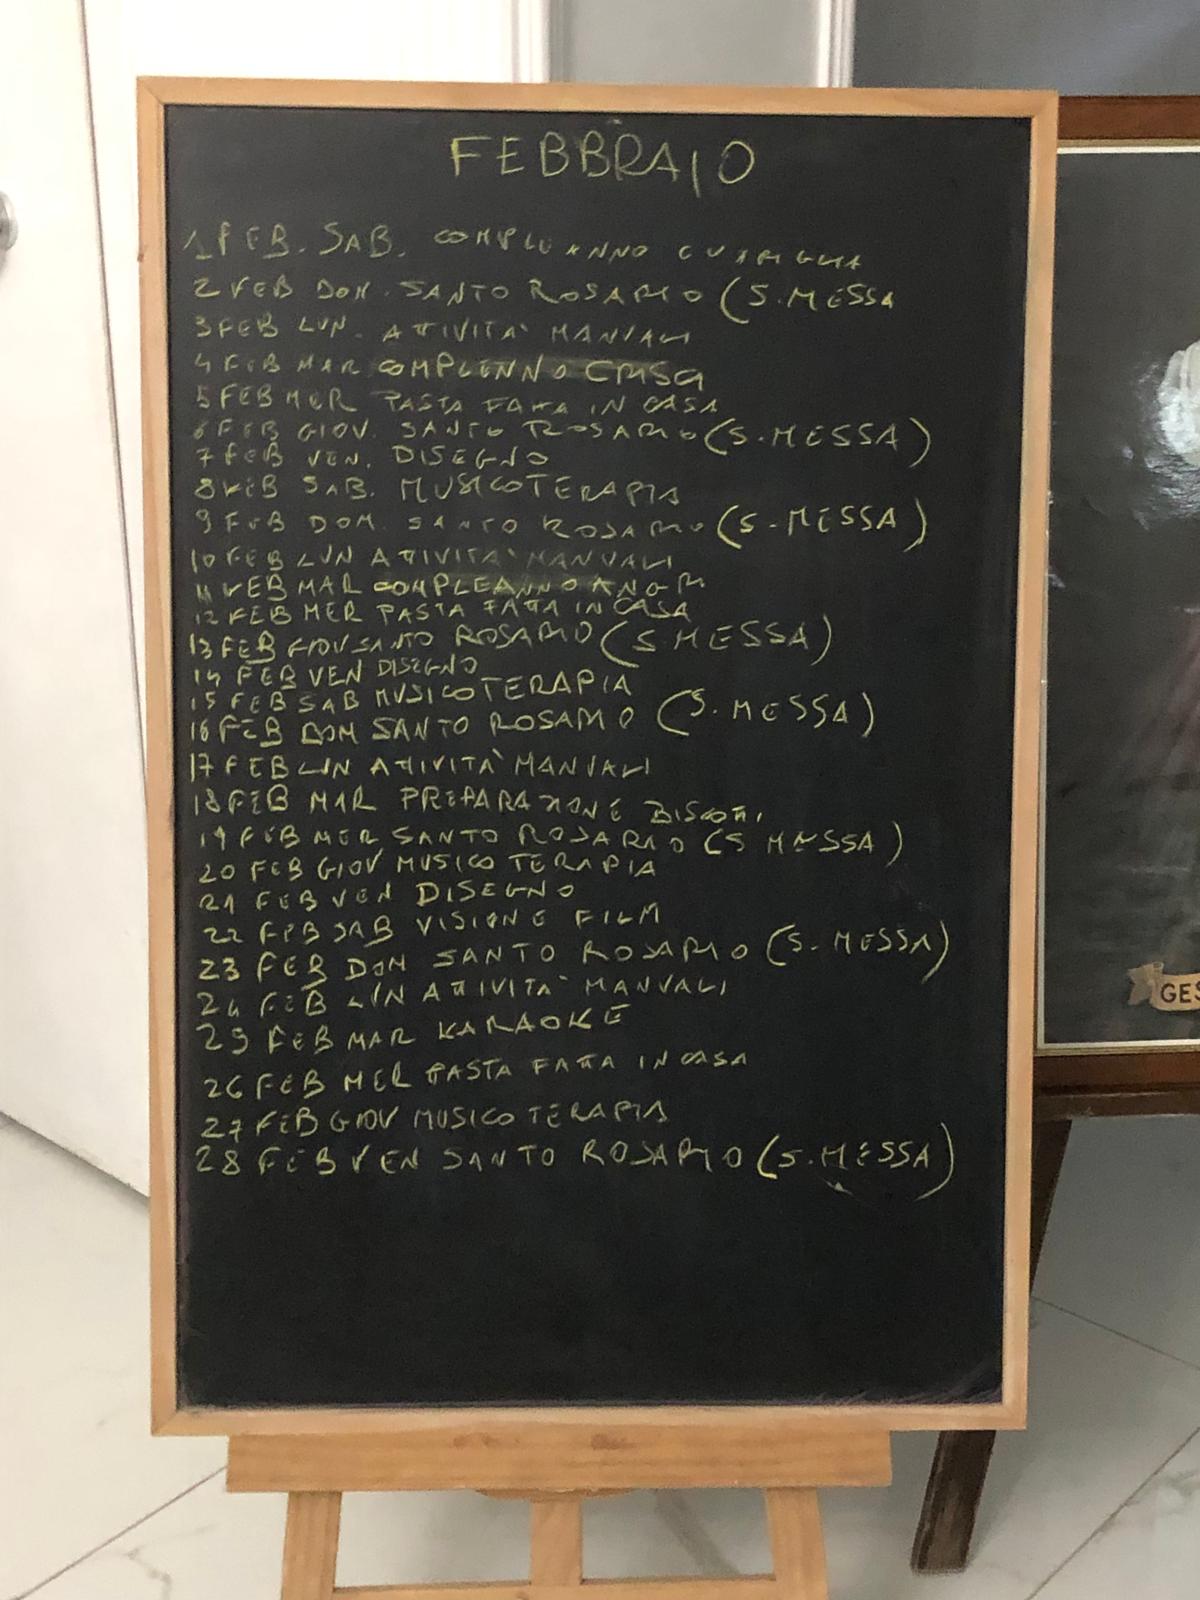 FEBBRAIO
1 FEB. SAB. COMPLEANNO
2 FEB DOM. SANTO ROSARIO (S. MESSA
3 FEB LUN. ATTIVITA' MANUALI
4 FEB MAR COMPLENNO
5 FEB MER PASTA FATTA IN CASA
6 FEB GIOV. SANTO ROSARIO (S. MESSA)
7 FEB VEN. DISEGNO
8 FEB SAB. MUSICOTERAPIA
9 FEB DOM. SANTO ROSARIO (S. MESSA)
10 FEB LUN ATTIVITA' MANUALI
11 FEB MAR COMPLEANNO
12 FEB MER PASTA FATTA IN CASA
13 FEB GIOV SANTO ROSARIO (S. MESSA)
14 FEB VEN DISEGNO
15 FEB SAB MUSICOTERAPIA
16 FEB DOM SANTO ROSARIO (S. MESSA)
17 FEB LUN ATTIVITA' MANUALI
18 FEB MAR PREPARAZIONE BISCOTTI
19 FEB MER SANTO ROSARIO (S MESSA)
20 FEB GIOV MUSICO TERAPIA
21 FEB VEN DISEGNO
22 FEB SAB VISIONE FILM
23 FEB DOM SANTO ROSARIO (S. MESSA)
24 FEB LUN ATTIVITA' MANUALI
25 FEB MAR KARAOKE
26 FEB MER PASTA FATTA IN CASA
27 FEB GIOV MUSICO TERAPIA
28 FEB VEN SANTO ROSARIO (S. MESSA)
GES